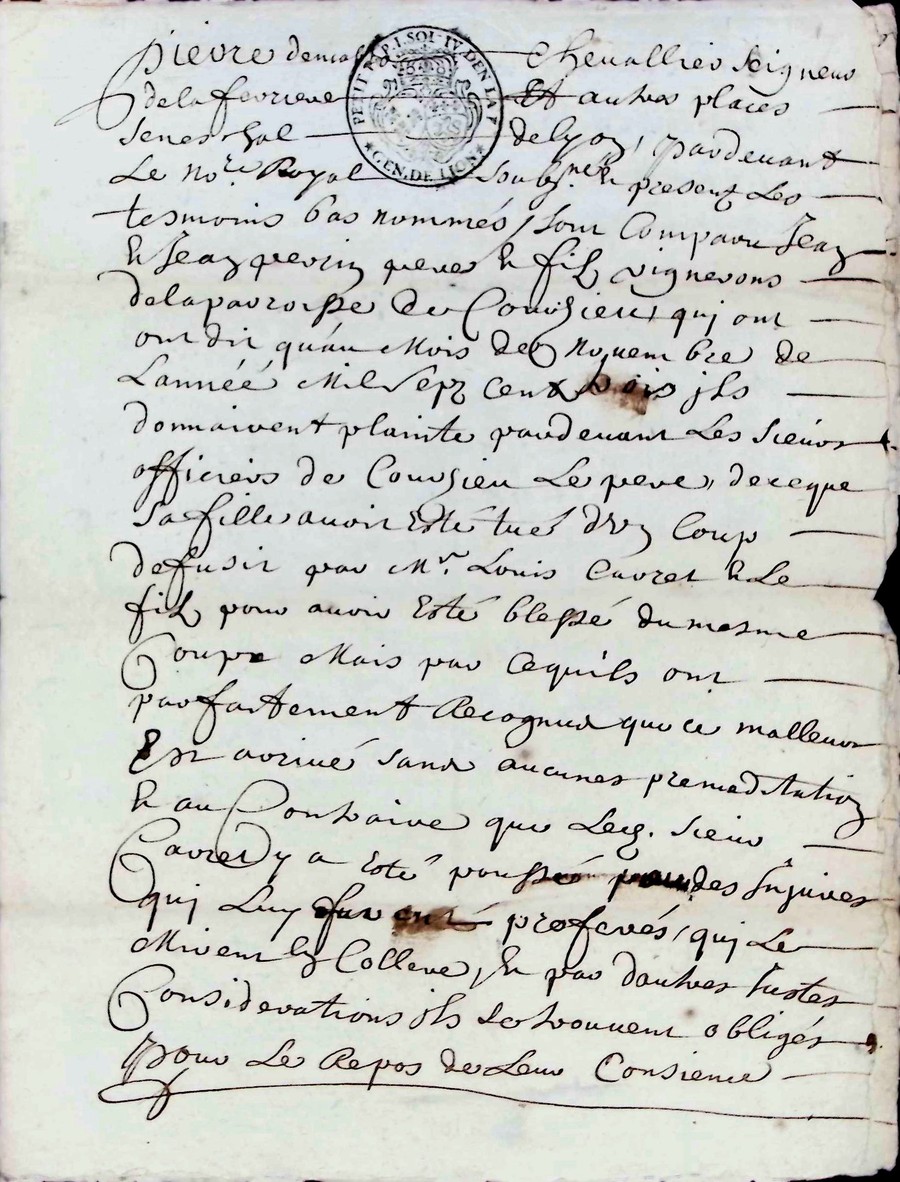 pierre de chevallier seigneur
de la ferriere Et autres places
seneschal de lyon, pardevant
Le no.re Royal soubz.né & present Les
tesmoins bas nommés, sont Comparu Jean
& Jean perrin pere & fils vignerons
de la parroisse de Courzieu, qui ont
ont dit qu'au Mois de novembre de
L'année Mil sept Cent trois ils
donnairent plainte pardevant Les sieurs
officiers de Courzieu Le pere, de ce que
sa fille avoit Esté tué d'un Coup
de fusil par Mr. Louis Cavret & Le
fils pour avoir Esté blessé du mesme
Coup Mais par Cequ'ils ont
parfaitement Recognus que ce malleur
Est arrivé sans aucunes premeditation
& au Contraire que Led. sieur
Cavret y a esté poussé par des Injures
qui Luy furent proferés, qui Le
Mirent En Collere, & par d'autres Justes
Considerations ils se trouvent obligés
pour Le Repos de Leur Consience
PETIT PAP. 1. SOL. IV. DEN. LA F.
GEN. DE LION